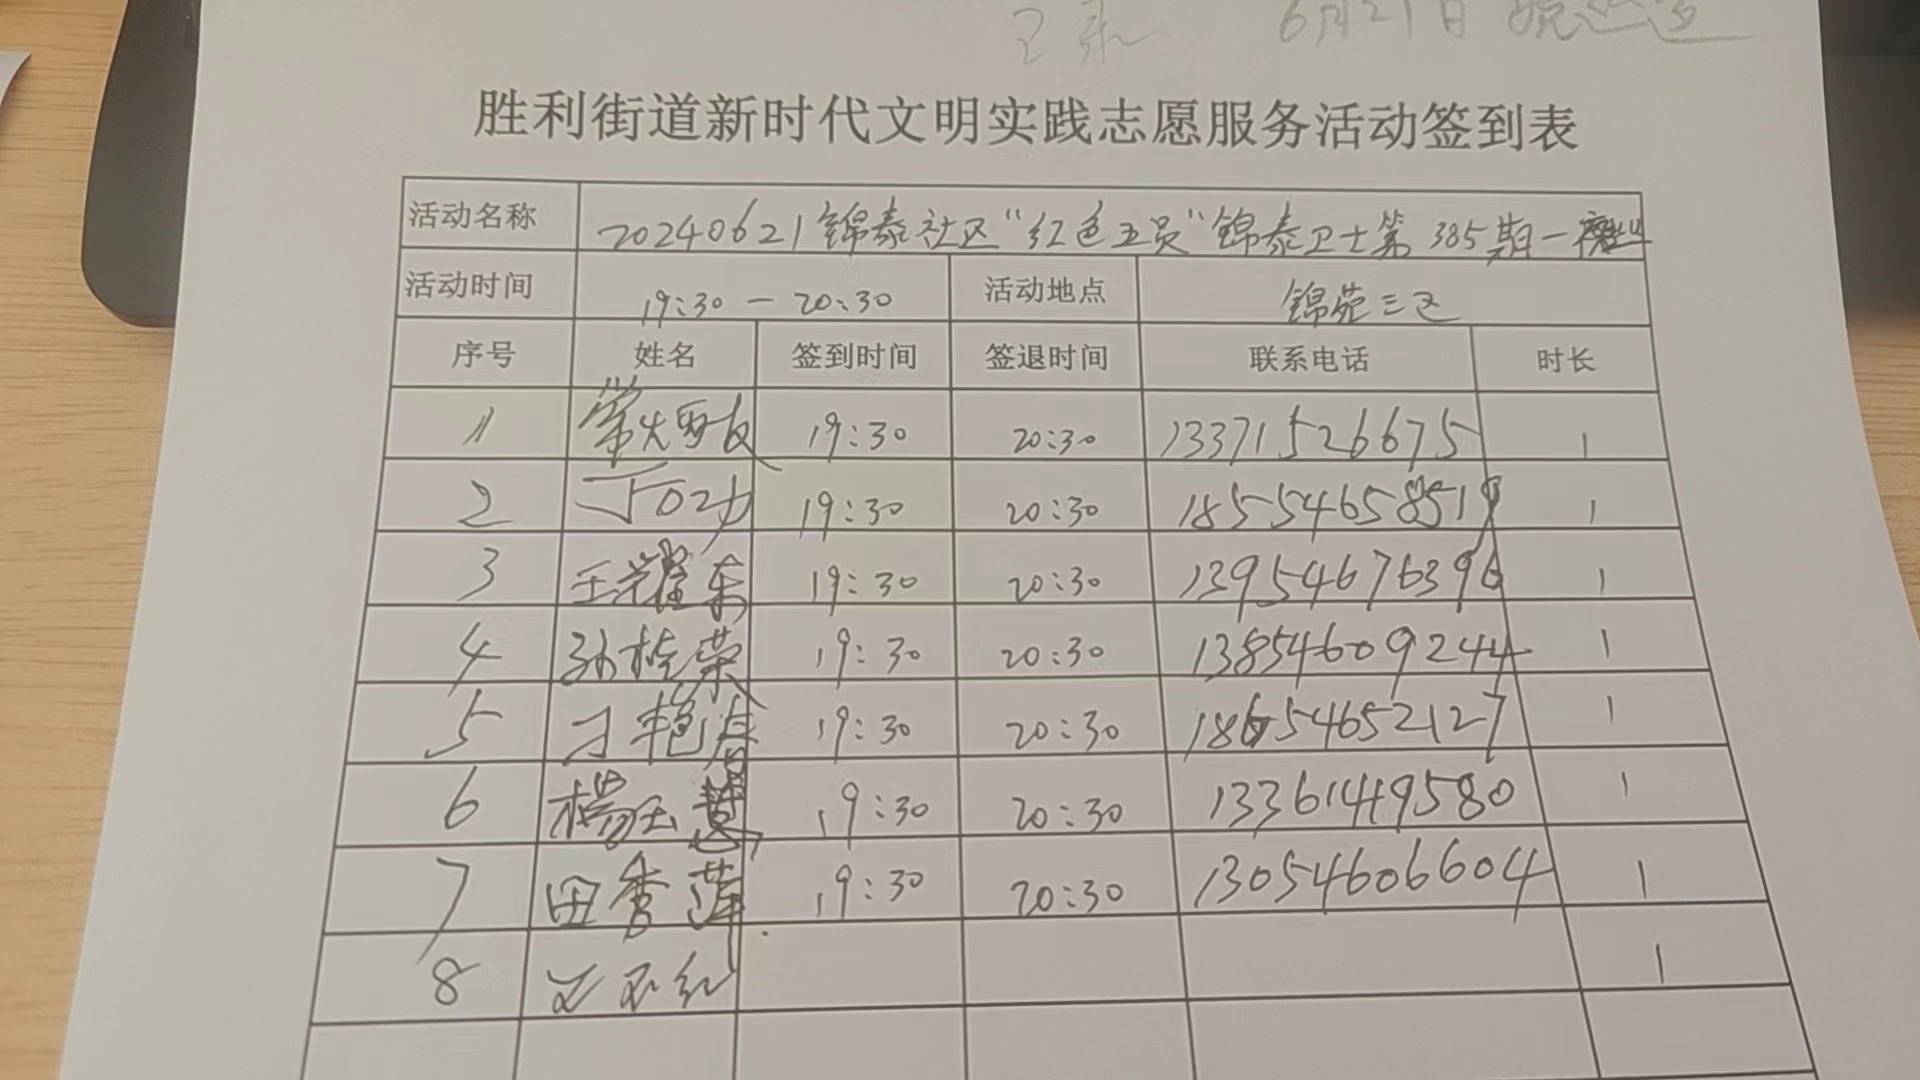 6月21日
胜利街道新时代文明实践志愿服务活动签到表
活动名称 20240621锦泰社区“红色五员”锦泰卫士第385期一
活动时间 19:30 — 20:30 活动地点 锦苑三区
序号 姓名 签到时间 签退时间 联系电话 时长
1 19:30 20:30 13371526675 1
2 19:30 20:30 18554658519 1
3 王耀东 19:30 20:30 13954676396 1
4 孙桂荣 19:30 20:30 13854609244 1
5 刁艳春 19:30 20:30 18654652127 1
6 杨玉慧 19:30 20:30 13361449580 1
7 田秀莲 19:30 20:30 13054606604 1
8 1